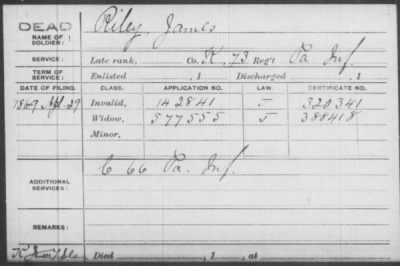 DEAD Riley, James
NAME OF
SOLDIER:
SERVICE: Late rank, Co. K, 73 Reg't Pa. Inf.
TERM OF
SERVICE: Enlisted , 1 Discharged , 1
DATE OF FILING. CLASS. APPLICATION NO. LAW. CERTIFICATE NO.
1869 Apl. 29 Invalid, 142841 J 320341
Widow, 577555 J 388418
Minor,
C 66 Pa. Inf.
ADDITIONAL
SERVICES:
REMARKS:
Died , 1 , at